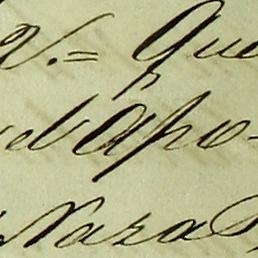 V.= Que
el Apo-
Naza